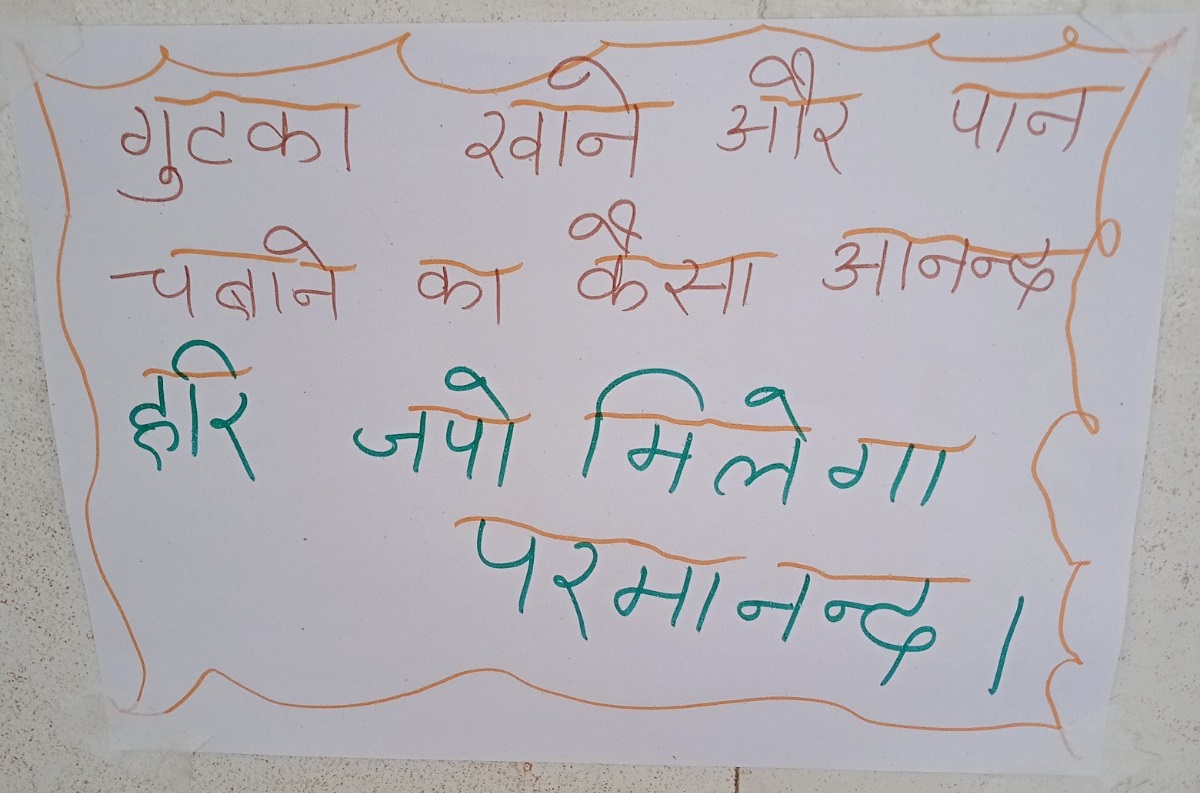 गुटका खाने और पान
चबाने का कैसा आनन्द
हरि जपो मिलेगा
परमानन्द।